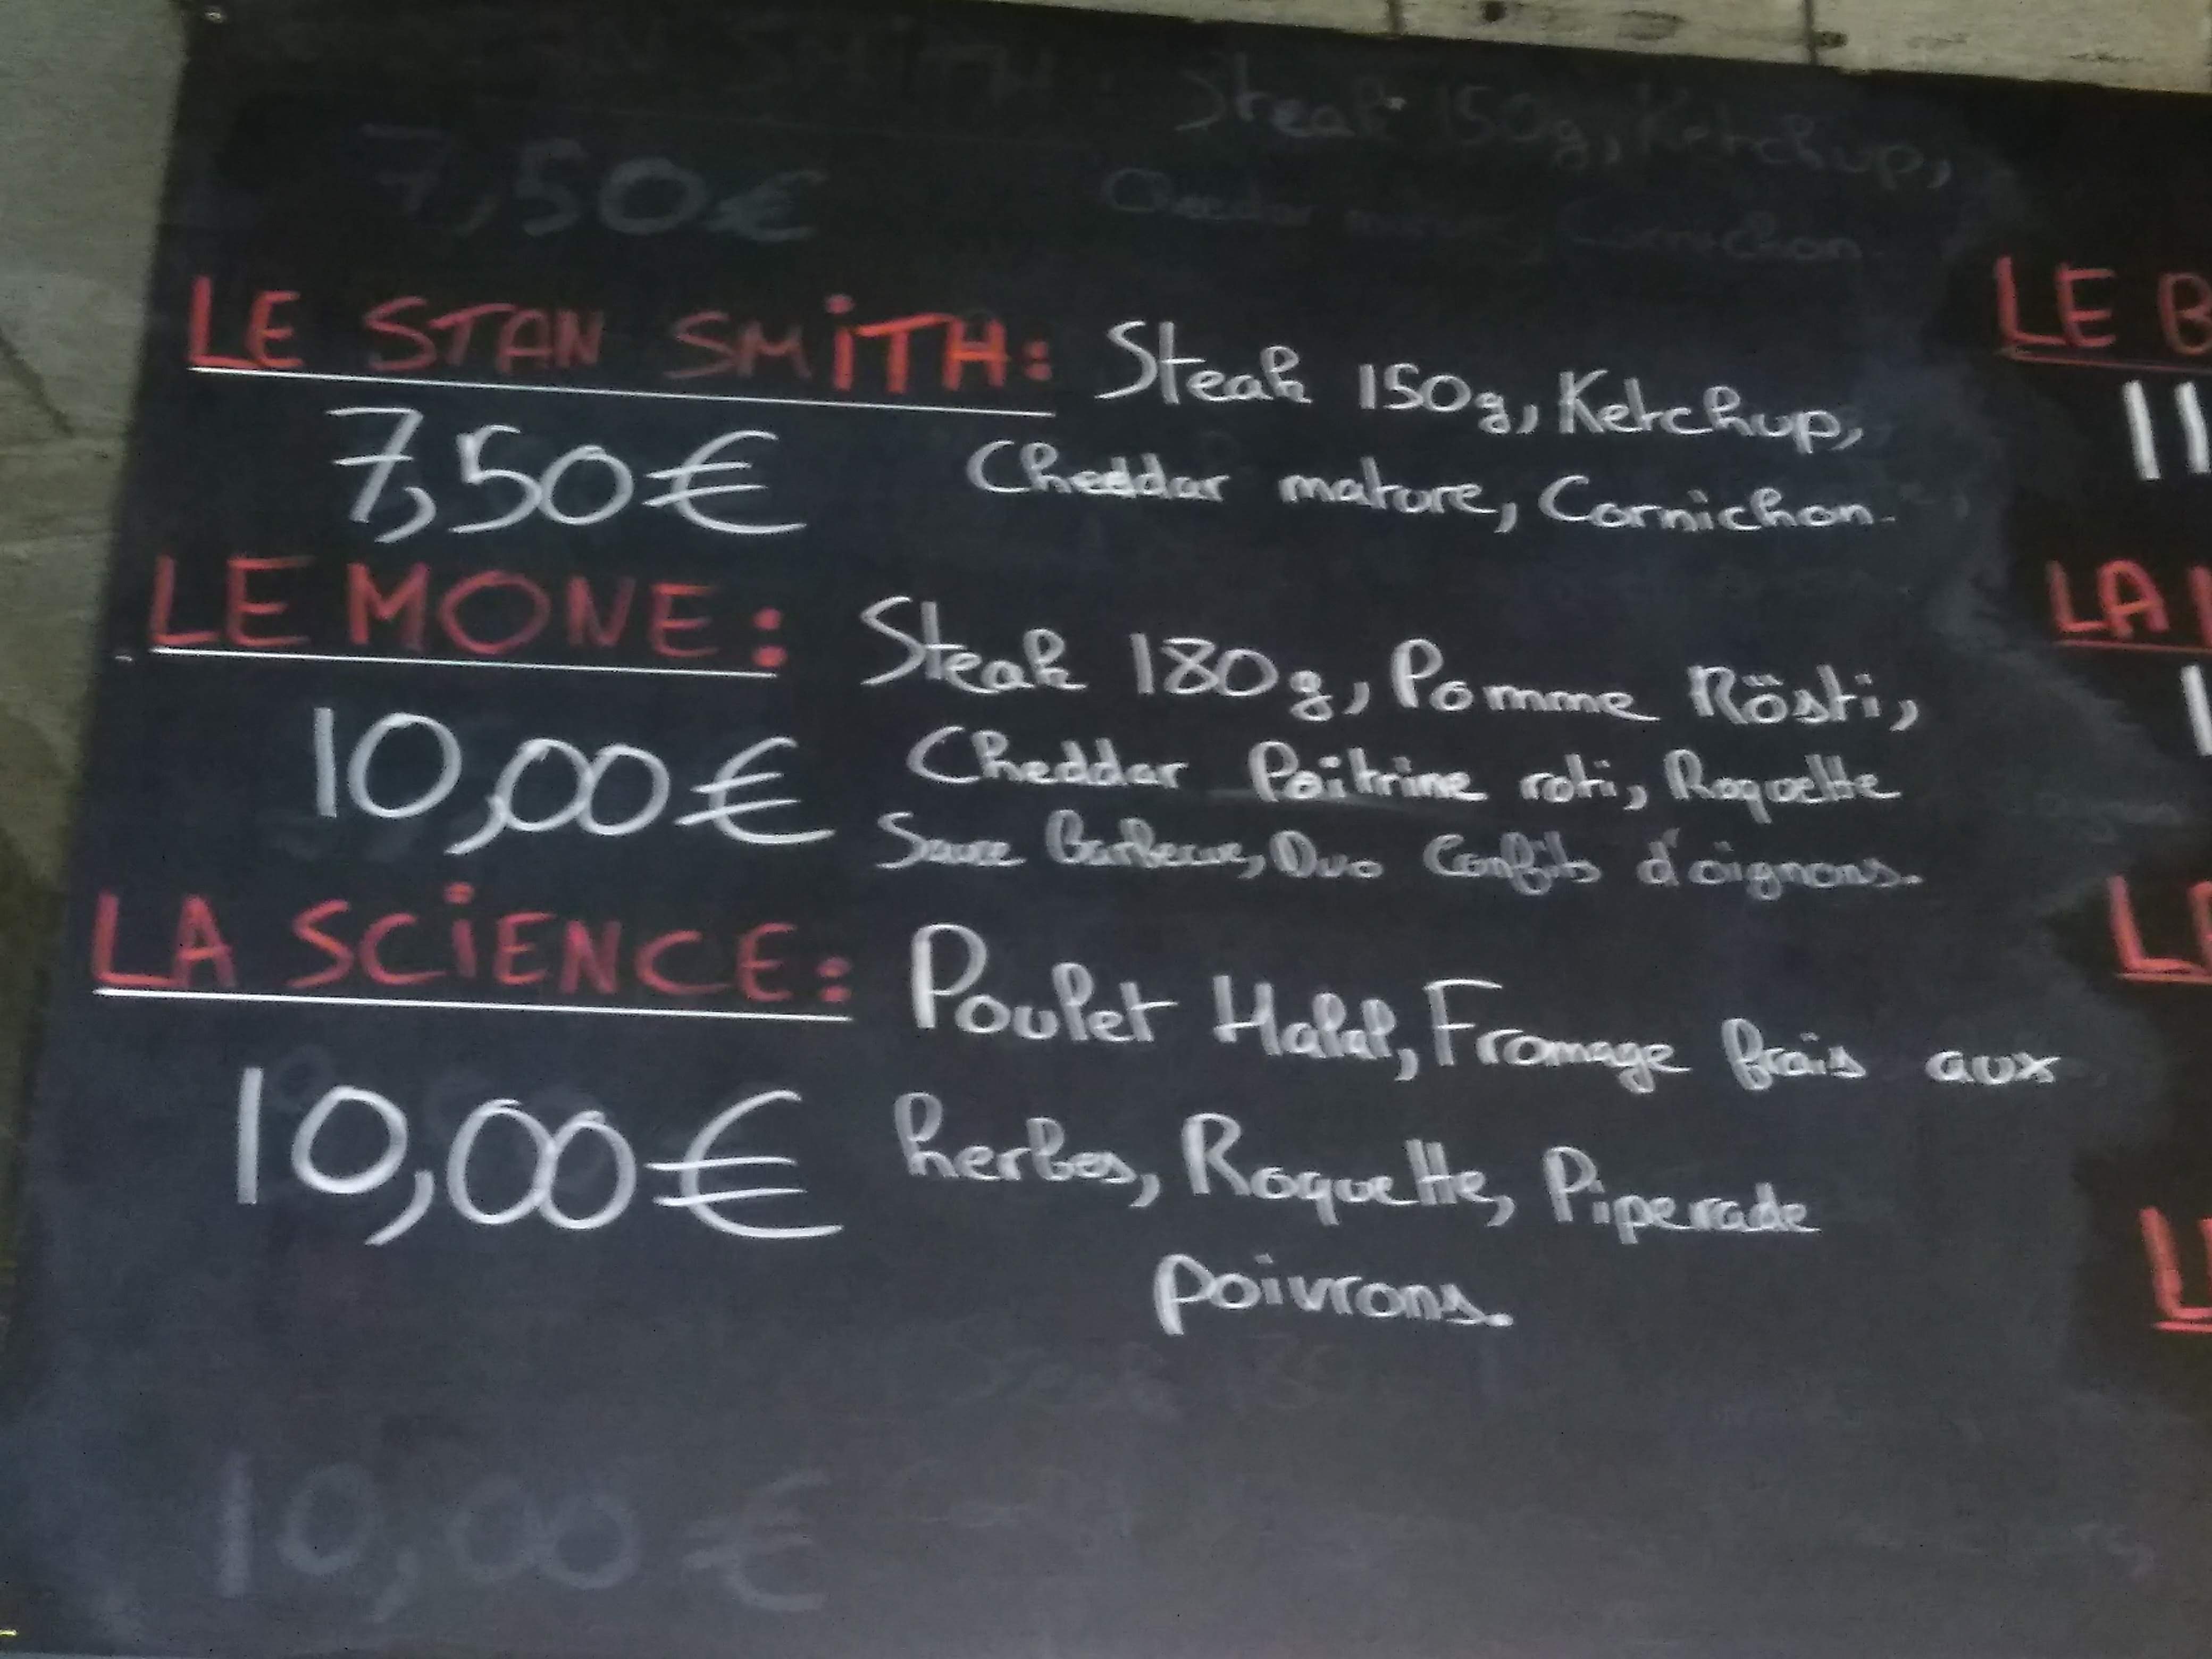 7,50€ Steak 150g, Ketchup,
Cornichon
LE STAN SMITH: Steak 150g, Ketchup,
7,50€ Cheddar mature, Cornichon.
LE MONE: Steak 180g, Pomme Rösti,
10,00€ Cheddar Poitrine roti, Roquette
Sauce Barbecue, Duo Confits d'oignons.
LA SCIENCE: Poulet Halal, Fromage frais aux
10,00€ herbes, Roquette, Piperade
poivrons.
10,00€
LE B
11
LA
1